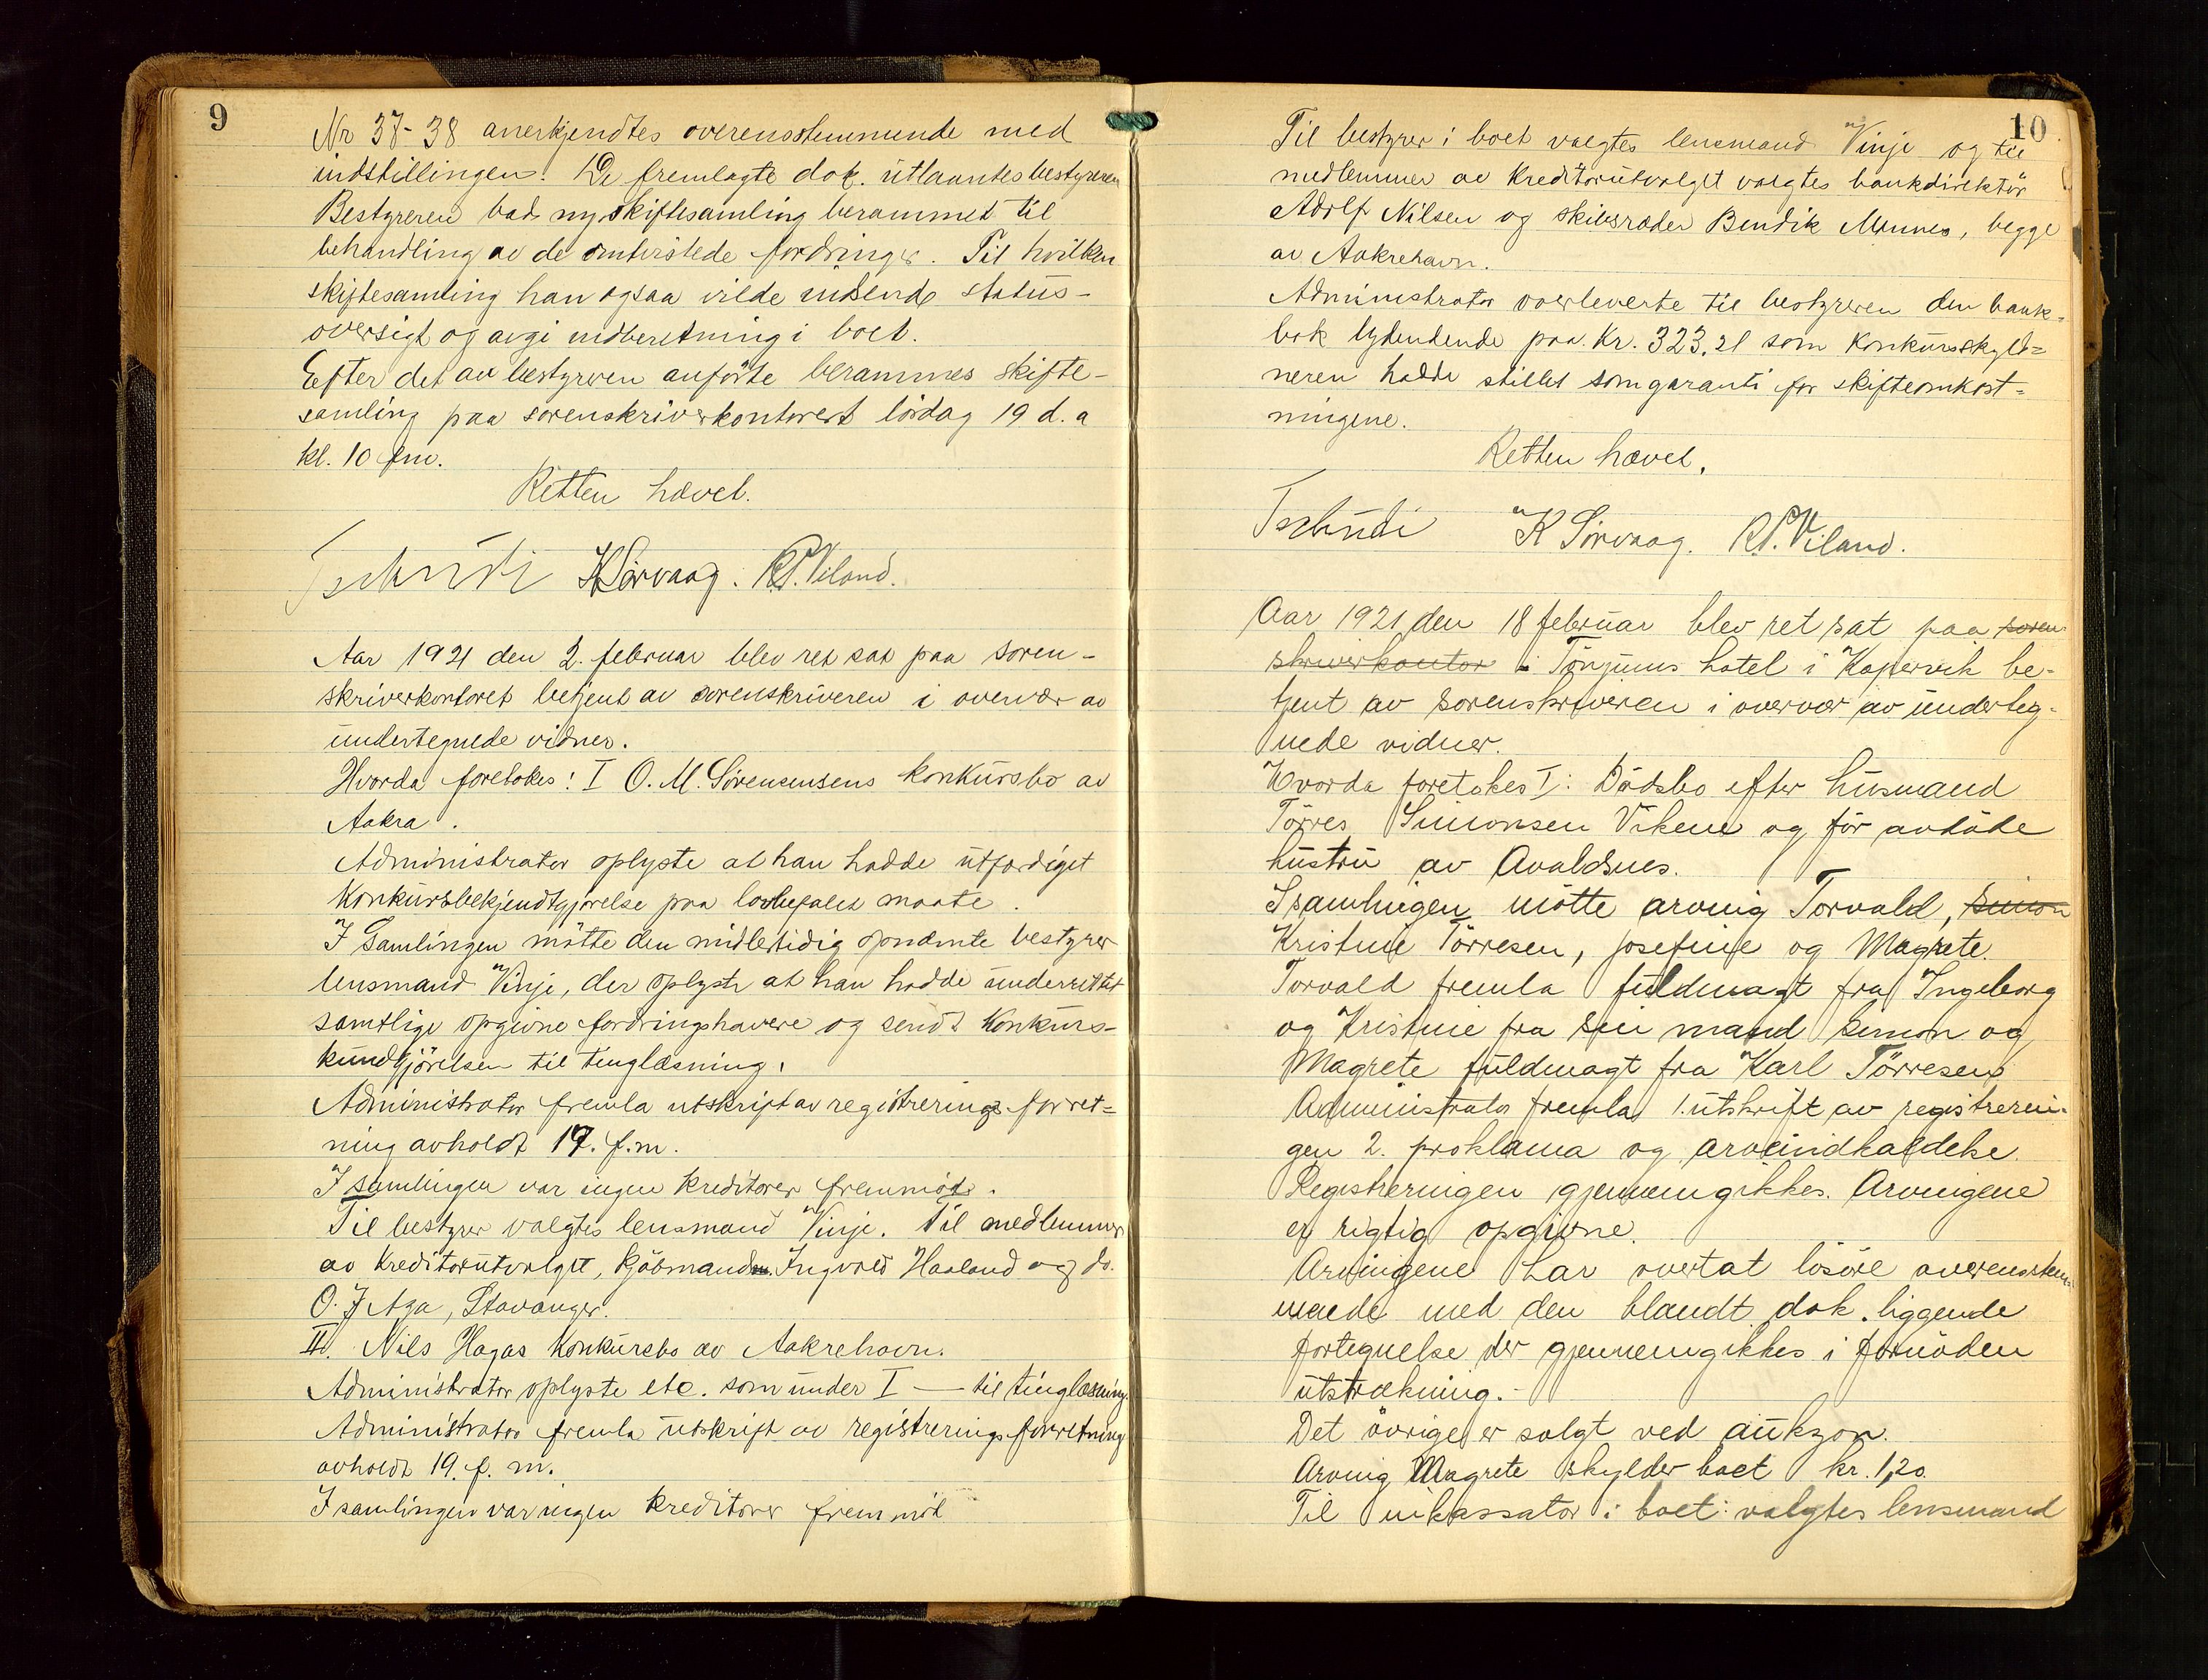 9
Nr 37-38 anerkjendtes overensstemmende med
indstillingen. De fremlagte dok. utlaantes bestyreren
Bestyreren bad ny skiftesamling berammet til
behandling av de omtvistede fordringer. Til hvilken
skiftesamling han ogsaa vilde indsende status-
oversigt og avgi indberetning i boet.
Efter det av bestyreren anförte berammes skifte-
samling paa sorenskriverkontoret lördag 19 d. a
kl. 10 fm.
Retten hævet.
Tschudi K Sörvaag. R.P. Viland.
Aar 1921 den 2. februar blev ret sat paa soren-
skriverkontoret betjent av sorenskriveren i overvær av
undertegnede vidner.
Hvorda foretokes: I O. M. Sörensensens konkursbo av
Aakra.
Administrator oplyste at han hadde utfærdiget
Konkursbekjendtgjörelse paa lovbefalet maate.
I Samlingen mötte den midlertidig opnævnte bestyrer
lensmand Vinje, der oplyste at han hadde underrettet
samtlige opgivne fordringshavere og sendt Konkurs-
kundgjörelsen til tinglæsning.
Administrator fremla utskrift av registrerings-forret=
ning avholdt 17. f.m.
I samlingen var ingen kreditorer fremmöt.
Til bestyrer valgtes lensmand Vinje. Til medlemmer
av Kreditorutvalget, kjöbmand Ingvald Haaland og do.
O. J Aga, Stavanger.
II. Nils Hagas Konkursbo av Aakrehavn.
Administrator oplyste etc. som under I — til tinglæsning.
Administrator fremla utskrift av registreringsforretning
avholdt 19. f. m.
I samlingen var ingen kreditorer fremmöt
10
Til bestyrer i boet valgtes lensmand Vinje og til
medlemmer av Kreditorutvalget valgtes bankdirektör
Adolf Nilsen og skibsreder Bendik Mannes, begge
av Aakrehavn.
Administrator overleverte til bestyreren den bank=
bok lydendende paa Kr. 323,21 som Konkursskyld=
neren hadde stillet som garanti for skifteomkost=
ningene.
Retten hævet.
Tschudi K Sörvaag. R.P. Viland.
Aar 1921 den 18 februar blev ret sat paa soren
skriverkontor i Tönjums hotel i Kopervik be-
tjent av Sorenskriveren i overvær av underteg-
nede vidner.
Hvorda foretokes I: Dödsbo efter husmand
Törres Simonsen Vikene og för avdöde
hustru av Avaldsnes.
I samlingen mötte arving Torvald, Simon
Kristine Törresen, Josefine og Magrete.
Torvald fremla fuldmagt fra Ingeborg
og Kristine fra sin mand Simon og
Magrete fuldmagt fra Karl Törresen
Administrator fremla 1. utskrift av registrerin-
gen 2. proklama og arveindkaldelse.
Registreringen gjennemgikkes. Arvingene
er rigtig opgivne.
Arvingene har overtat lösöre overensstem-
mende med den blandt dok. liggende
fortegnelse der gjennemgikkes i fornöden
utstrækning.-
Det övrige er solgt ved aukzon.
Arving Magrete skylder boet kr. 1,20
Til inkassator i boet: valgtes lensmand